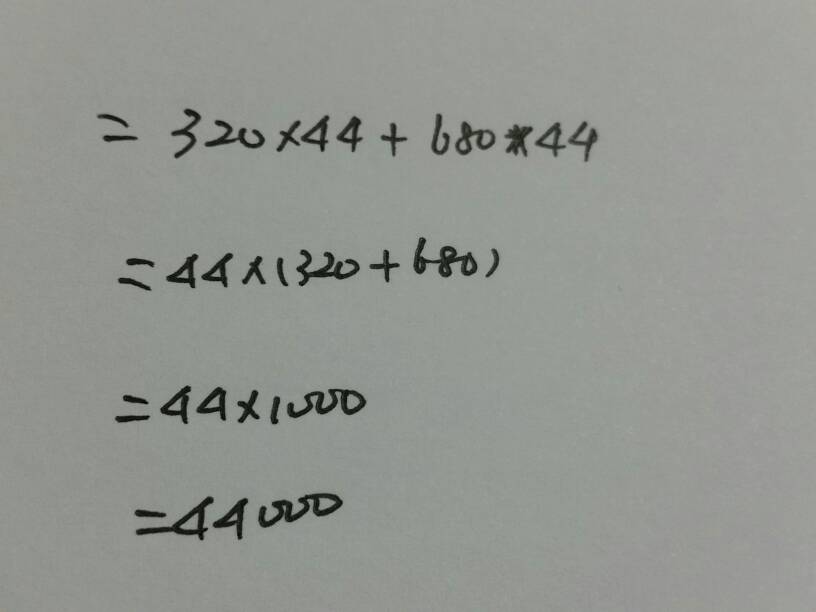 = 320×44+680×44
=44×(320+680)
=44×1000
=44000